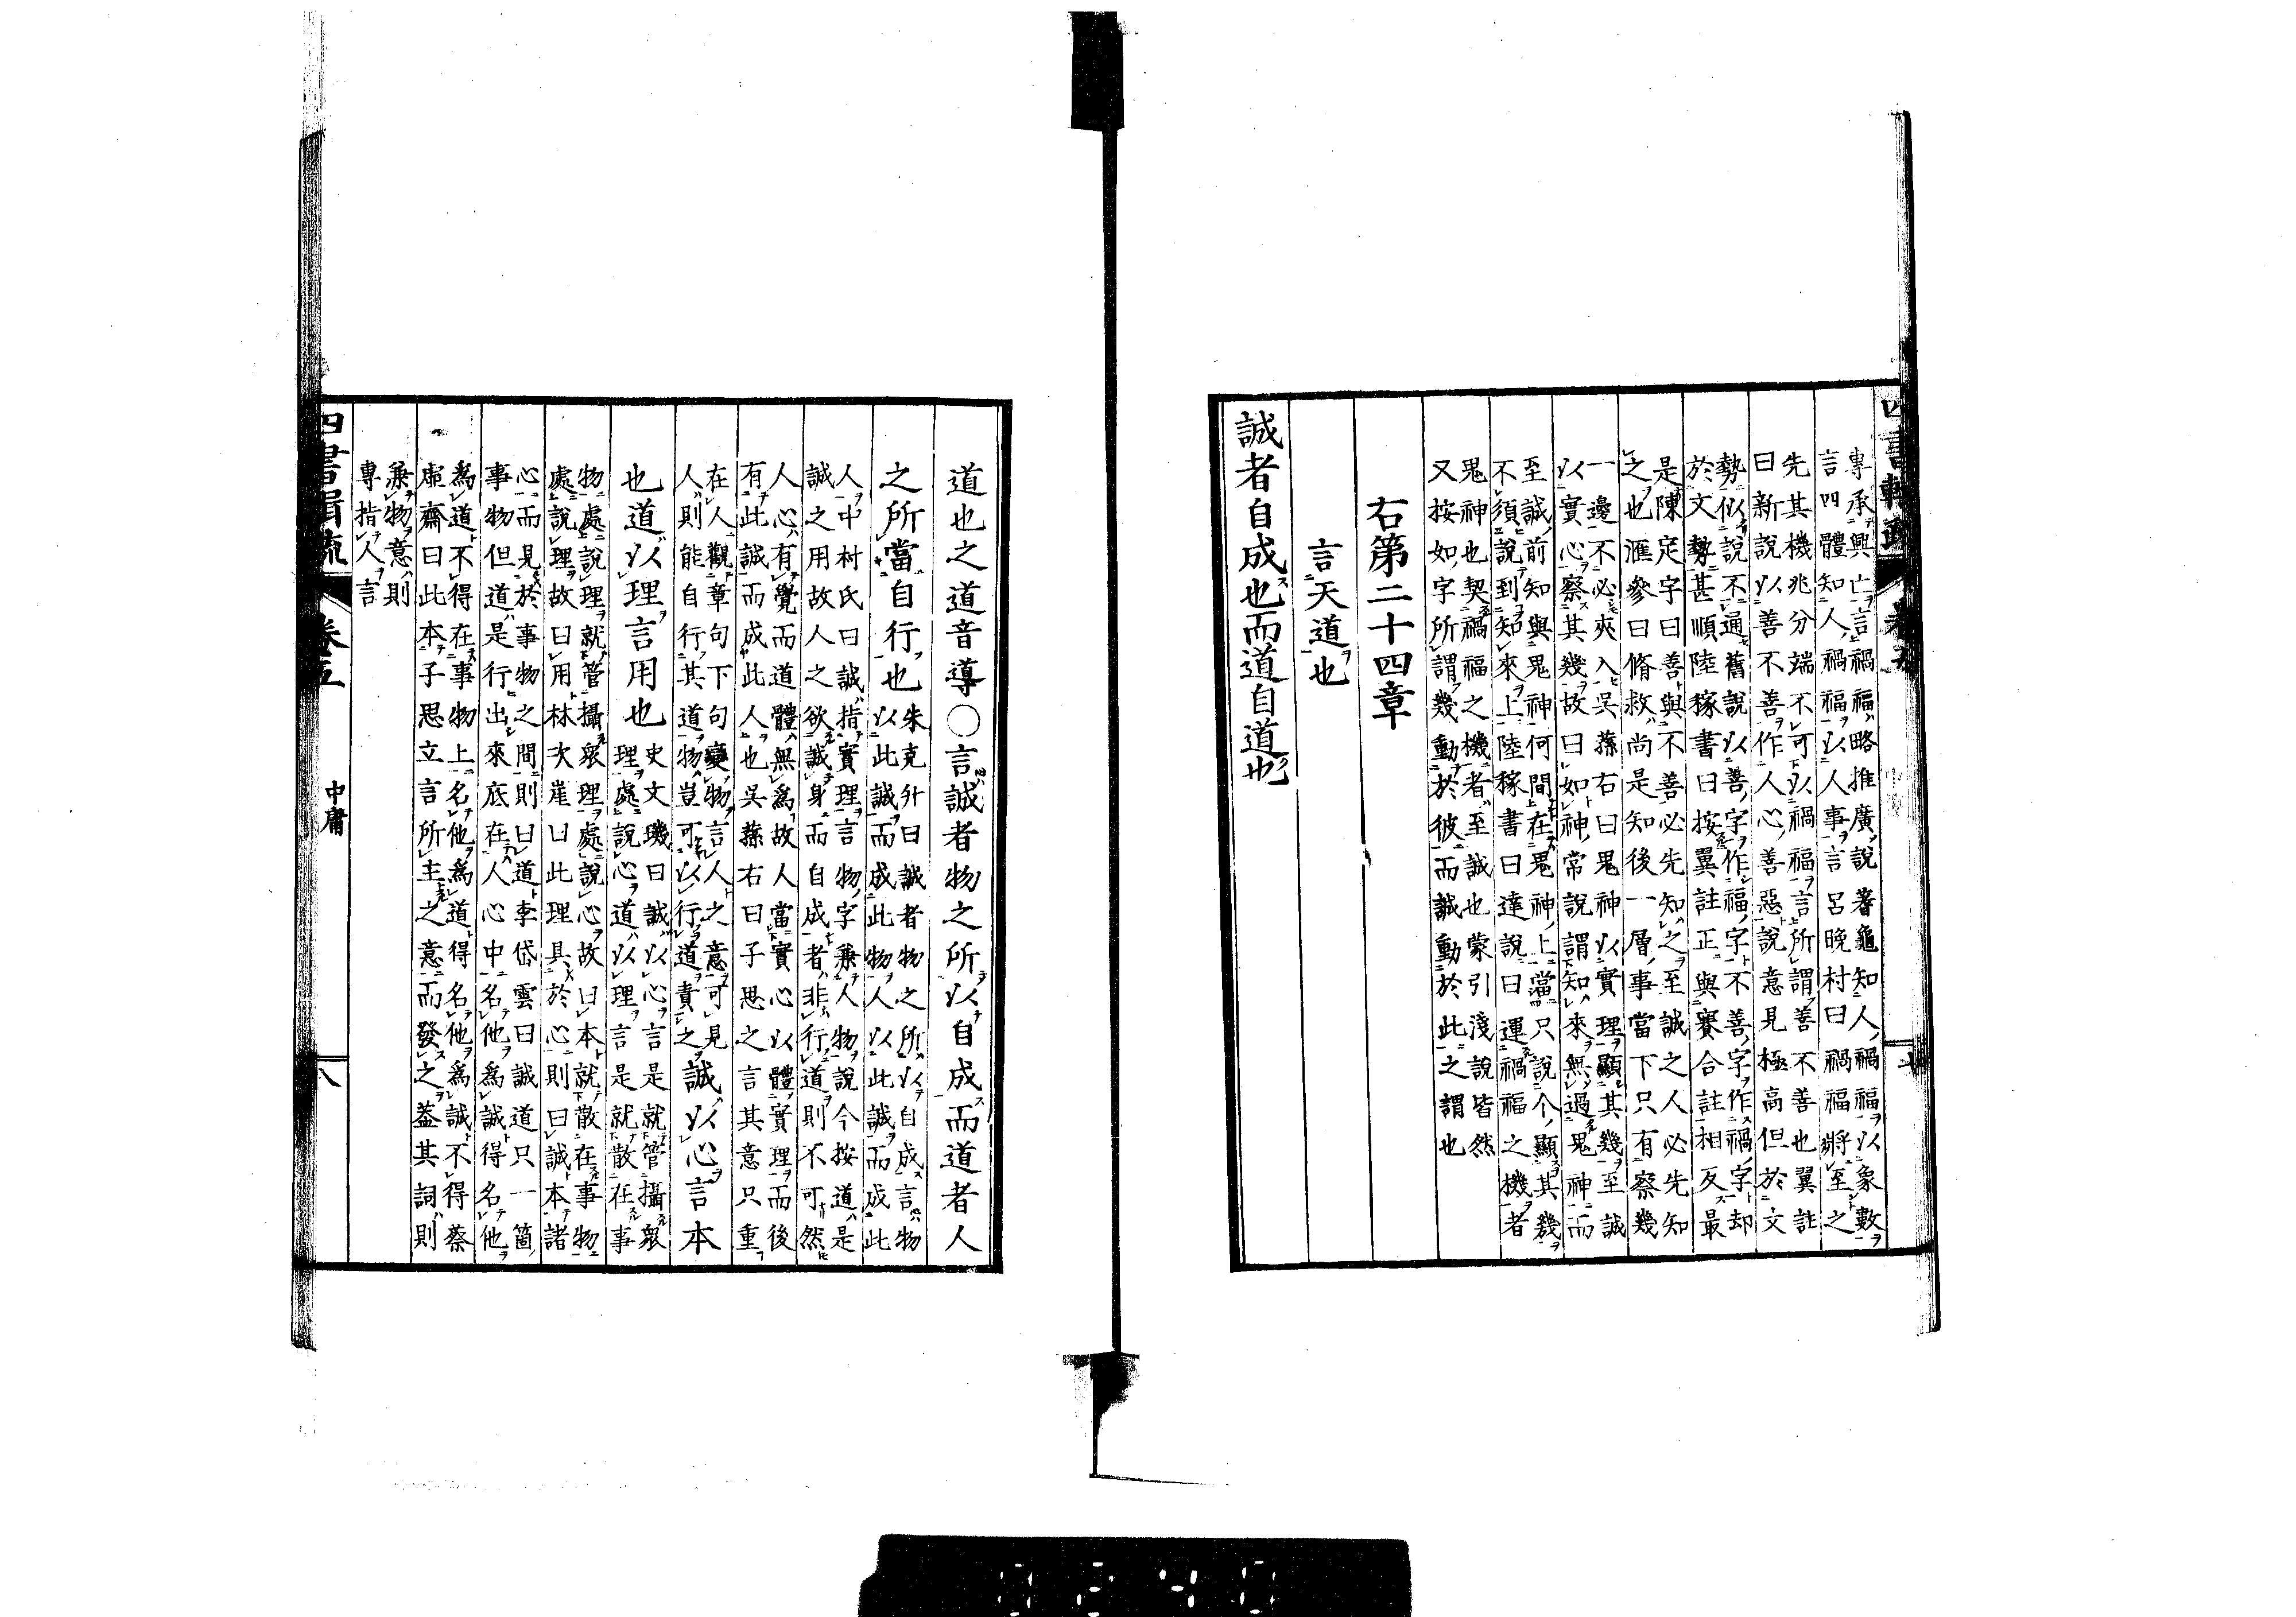 四書輯疏 卷五 七
專承興亡言禍福略推廣說蓍龜知人禍福以象數
言四體知人禍福以人事言呂晚村曰禍福將至之
先其機兆分端不可以禍福言所謂善不善也翼註
曰新說以善不善作人心善惡說意見極高但於文
勢似說不通舊說以善字作福字不善字作禍字却
於文勢甚順陸稼書曰按翼註正與賽合註相反最
是陳定宇曰善與不善必先知之至誠之人必先知
之也滙參曰脩救尚是知後一層事當下只有察幾
一邊不必夾入吳蓀右曰鬼神以實理顯其幾至誠
以實心察其幾故曰如神常說謂知來無過鬼神而
至誠前知與鬼神何間在鬼神上當只說个顯其幾
不須說到知來上陸稼書曰達說曰運禍福之機者
鬼神也契禍福之機者至誠也蒙引淺說皆然
又按如字所謂幾動於彼而誠動於此之謂也
右第二十四章
言天道也
誠者自成也而道自道也
道也之道音導○言誠者物之所以自成而道者人
之所當自行也
朱克升曰誠者物之所以自成言物
以此誠而成此物人以此誠而成此
人中村氏曰誠指實理言物字兼人物說今按道是
誠之用故人之欲誠身而自成者非行道則不可然
人心有覺而道體無爲故人當實心以體實理而後
有此誠而成此人也吳蓀右曰子思之言其意只重
在人觀章句下句變物言人之意可見
人則能自行其道物豈可以行道責之
誠以心言本
也道以理言用也
史文璣曰誠以心言是就管攝衆
理處說心道以理言是就散在事
物處說理就管攝衆理處說心故曰本就散在事物
處說理故曰用林次崖曰此理具於心則曰誠本諸
心而見於事物之間則曰道李岱雲曰誠道只一箇
事物但道是行出來底在人心中名他爲誠得名他
爲道不得在事物上名他爲道得名他爲誠不得蔡
虛齋曰此本子思立言所主之意而發之蓋其詞則
兼物意則
專指人言
四書輯疏 卷五 中庸 八